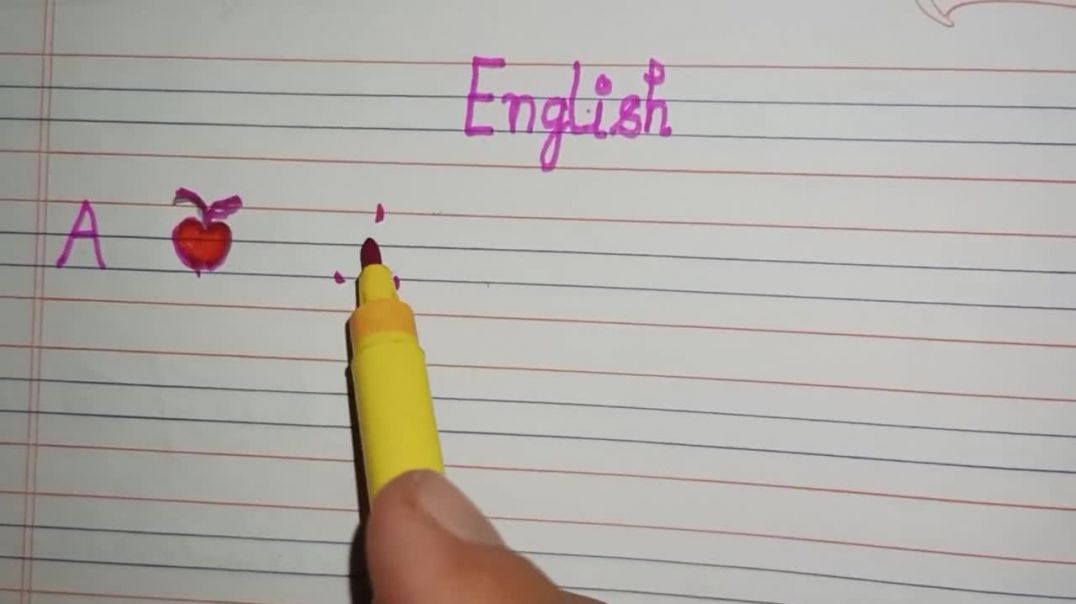 English
A